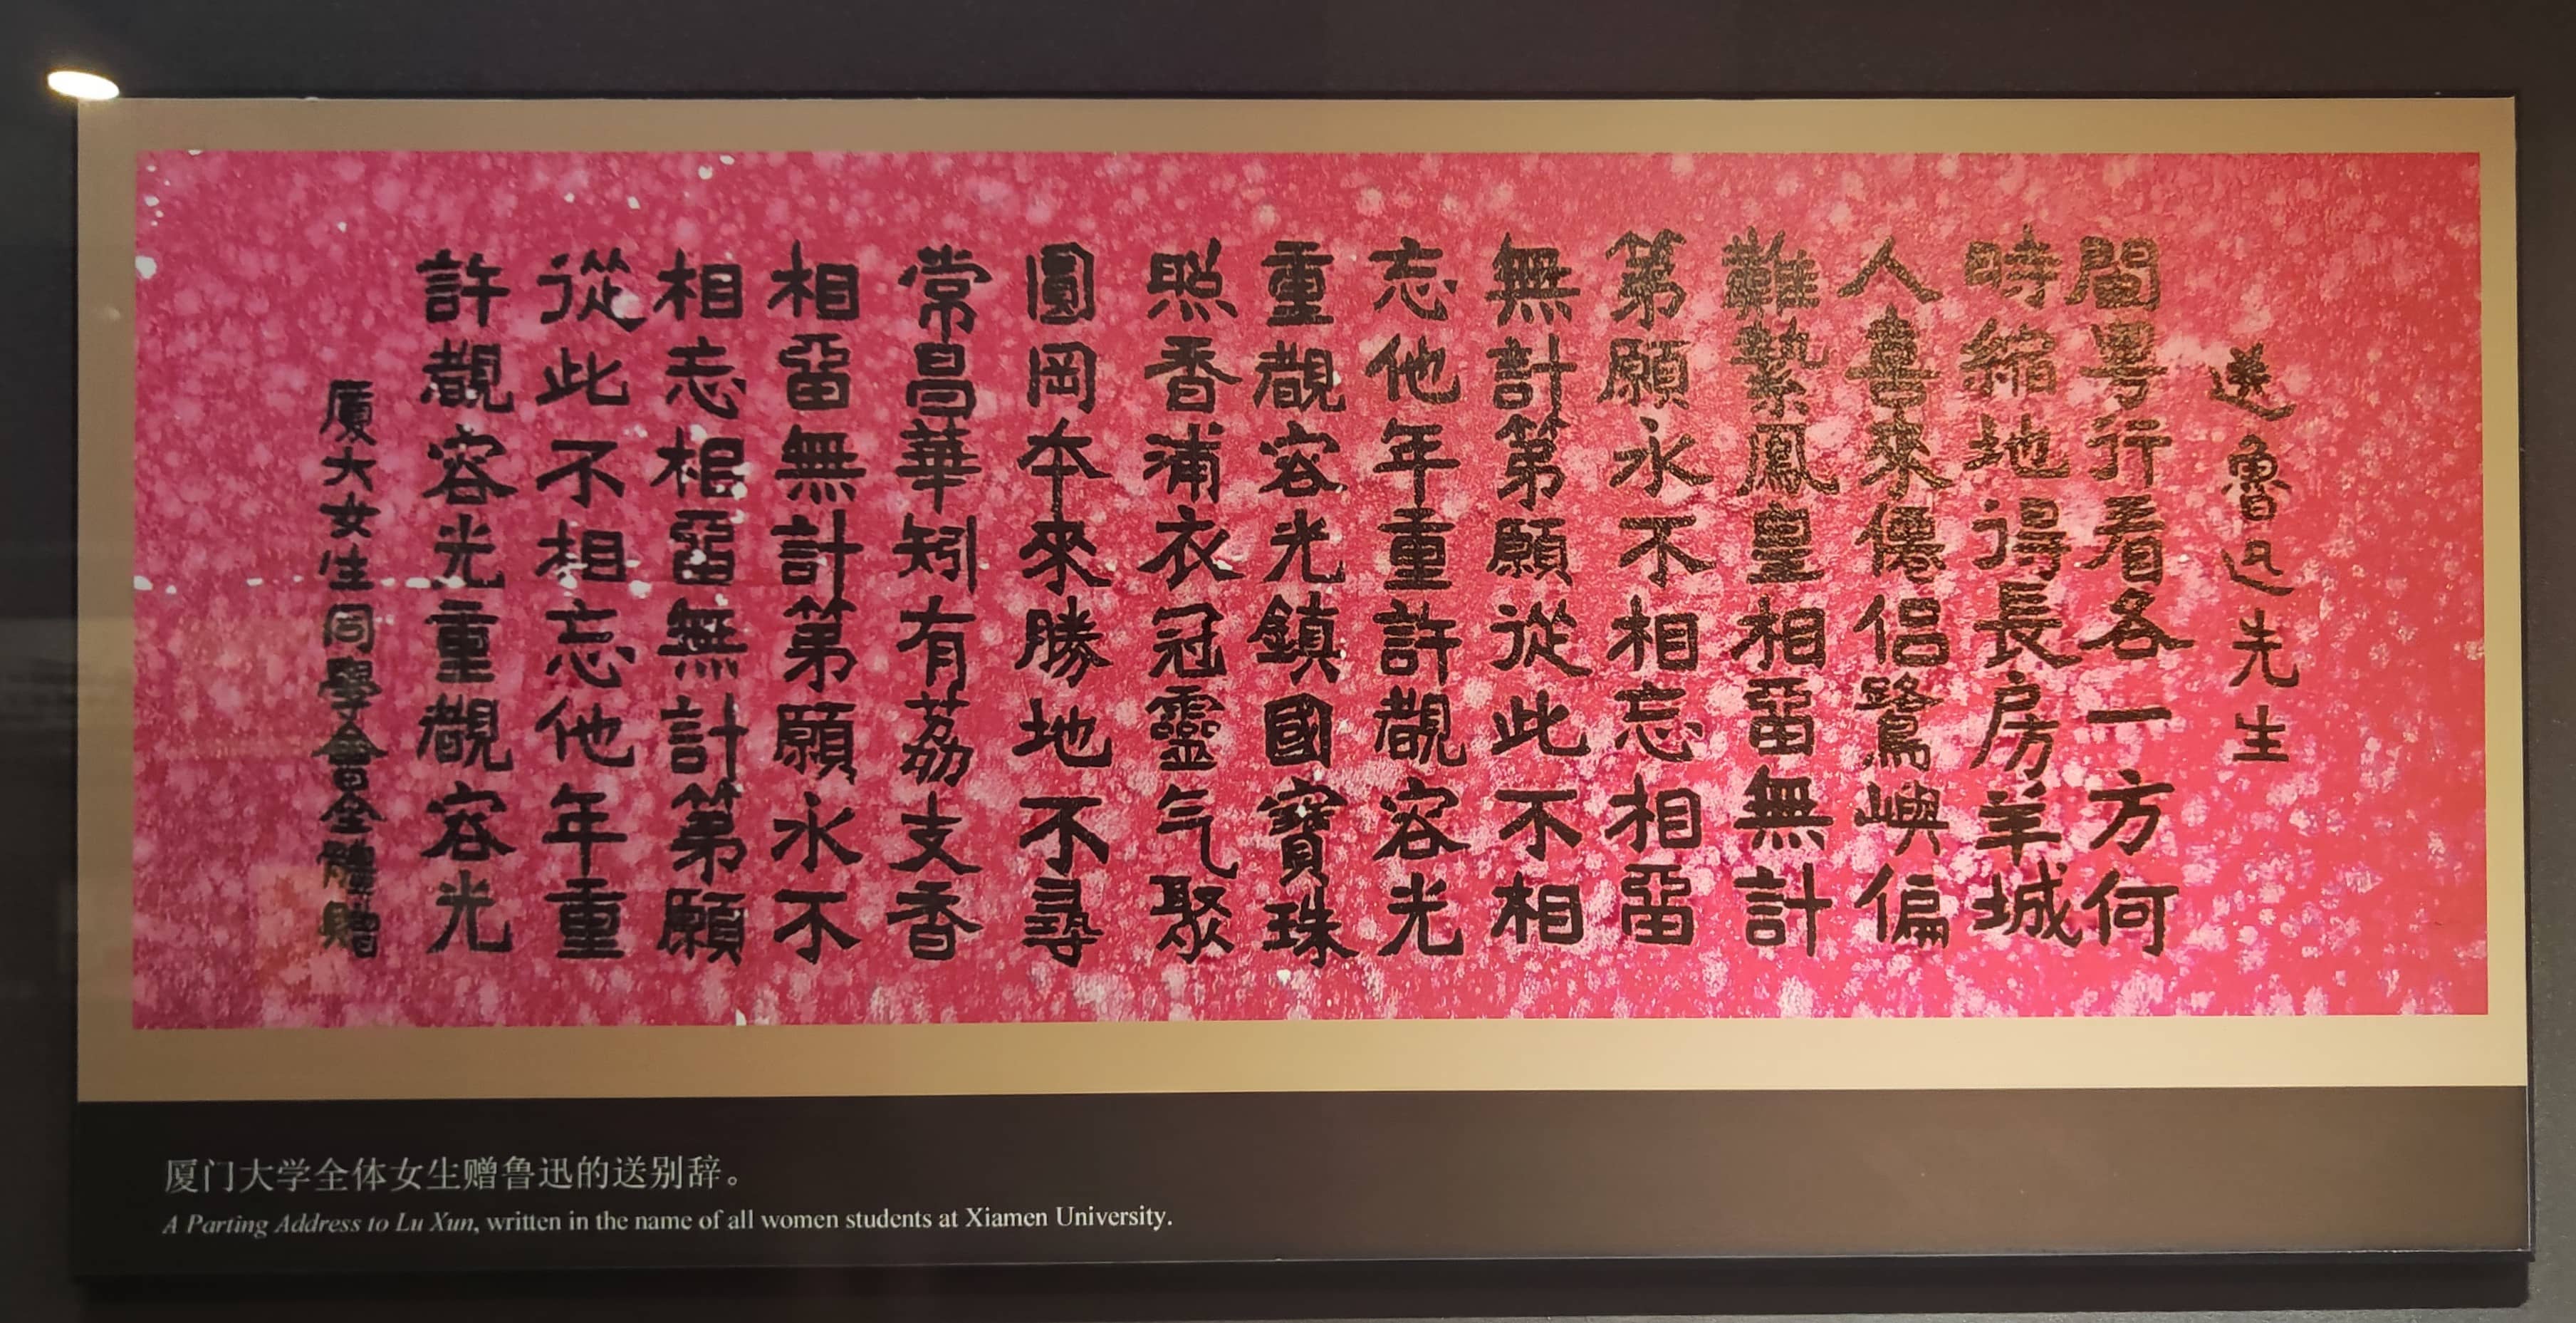 送魯迅先生
閩粵行看各一方何
時縮地得長房羊城
人喜來僊侶鷺嶼偏
難縶鳳皇相畱無計
第願永不相忘相畱
無計第願從此不相
忘他年重許覩容光
重覩容光鎮國寶珠
照香浦衣冠靈气聚
圓岡本來勝地不尋
常昌華矧有荔支香
相畱無計第願永不
相忘相畱無計第願
從此不相忘他年重
許覩容光重覩容光
廈大女生同學會全體贈
厦门大学全体女生赠鲁迅的送别辞。
A Parting Address to Lu Xun, written in the name of all women students at Xiamen University.